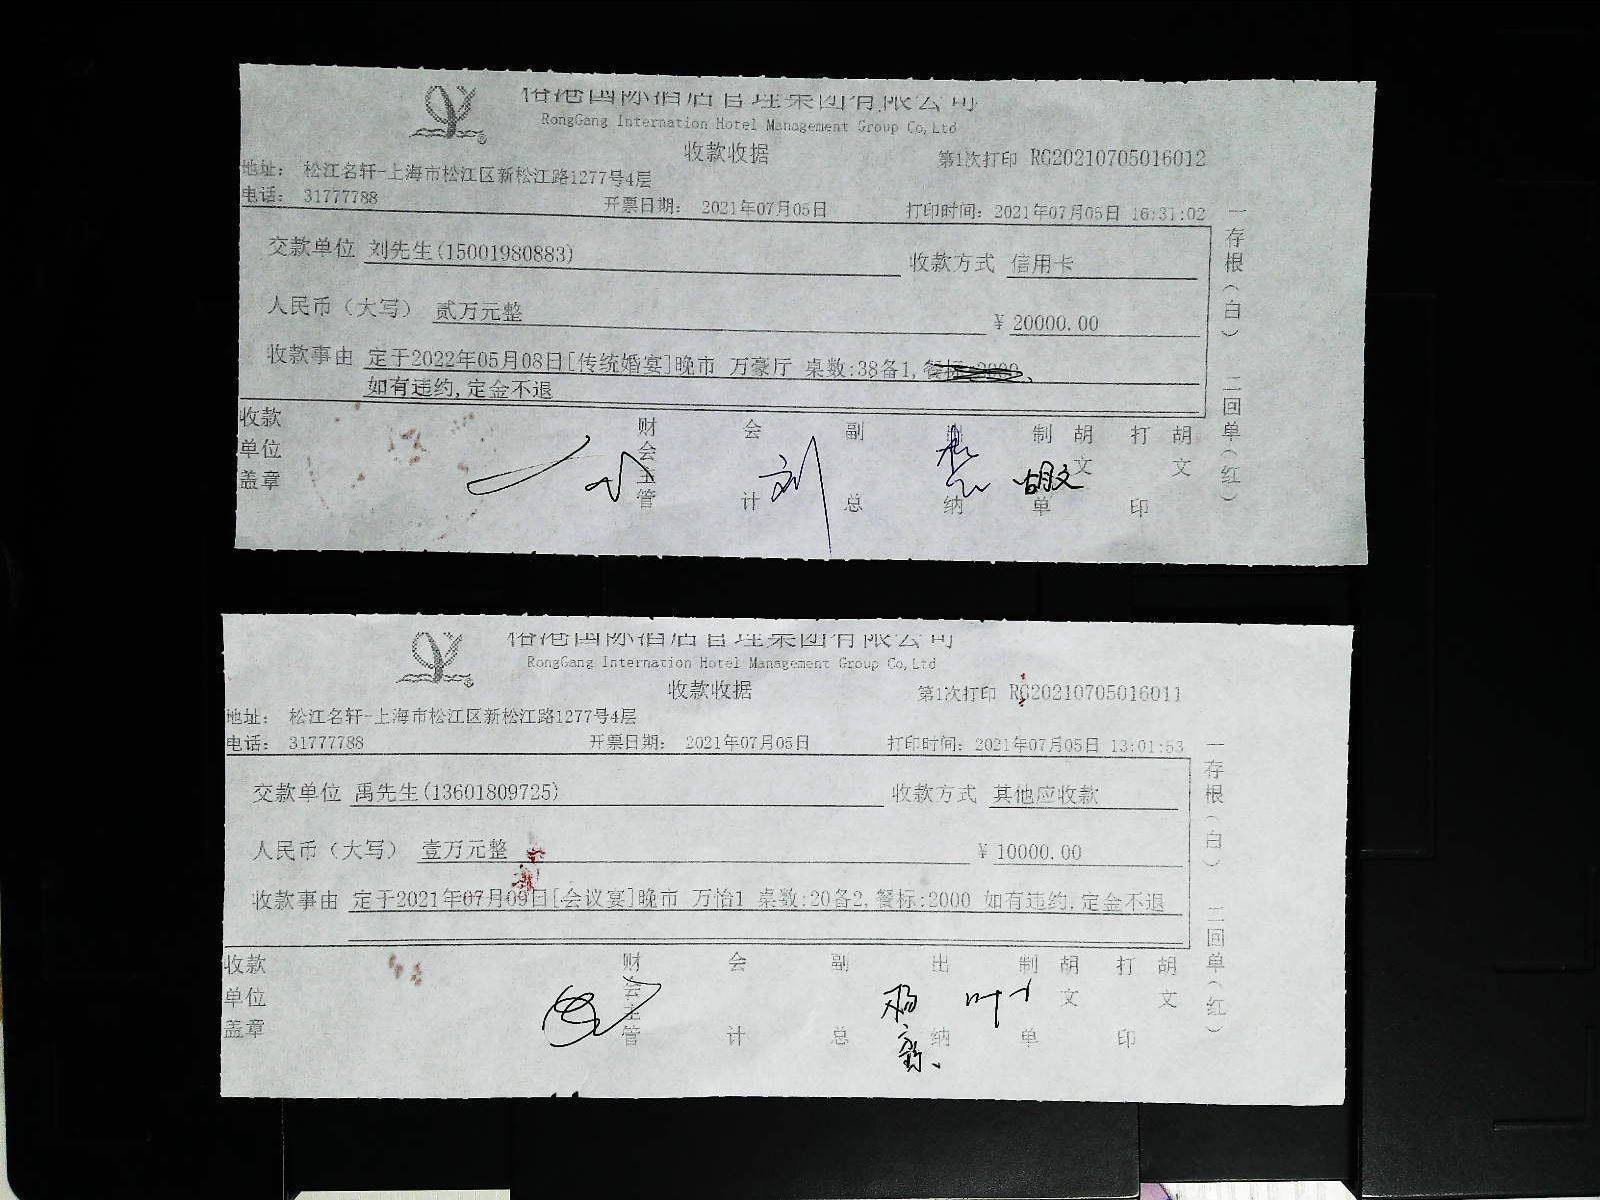 国际酒店管理集团有限公司
RongGang Internation Hotel Management Group Co,Ltd
收款收据
第1次打印 RG20210705016012
地址： 松江名轩-上海市松江区新松江路1277号4层
电话： 31777788 开票日期： 2021年07月05日 打印时间：2021年07月05日 16:31:02
交款单位 刘先生(15001980883) 收款方式 信用卡
人民币（大写） 贰万元整 ￥20000.00
收款事由 定于2022年05月08日[传统婚宴]晚市 万豪厅 桌数:38备1,
如有违约,定金不退
收款单位盖章 财会主管 会计 副总 纳 制单 胡文 打印 胡文
刘
胡文
一存根（白） 二回单（红）
国际酒店管理集团有限公司
RongGang Internation Hotel Management Group Co,Ltd
收款收据
第1次打印 RG20210705016011
地址： 松江名轩-上海市松江区新松江路1277号4层
电话： 31777788 开票日期： 2021年07月05日 打印时间：2021年07月05日 13:01:53
交款单位 禹先生(13601809725) 收款方式 其他应收款
人民币（大写） 壹万元整 ￥10000.00
收款事由 定于2021年07月09日[会议宴]晚市 万怡1 桌数:20备2,餐标:2000 如有违约,定金不退
收款单位盖章 财会主管 会计 副总 出纳 制单 胡文 打印 胡文
一存根（白） 二回单（红）